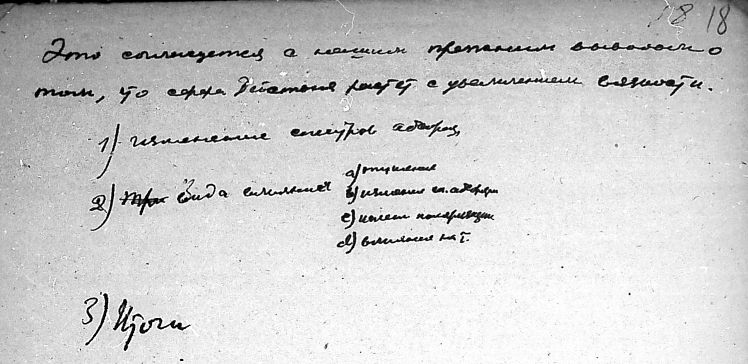 18 18
Это согласуется с нашим прежним выводом о
том, что сфера действия растет с увеличением вязкости.
1) изменение спектров абсорбц.
2) Три вида влияния
a) тушение
b) изменение сп. абсорбц
c) измен поляризации
d) влияние на τ.
3) Итоги